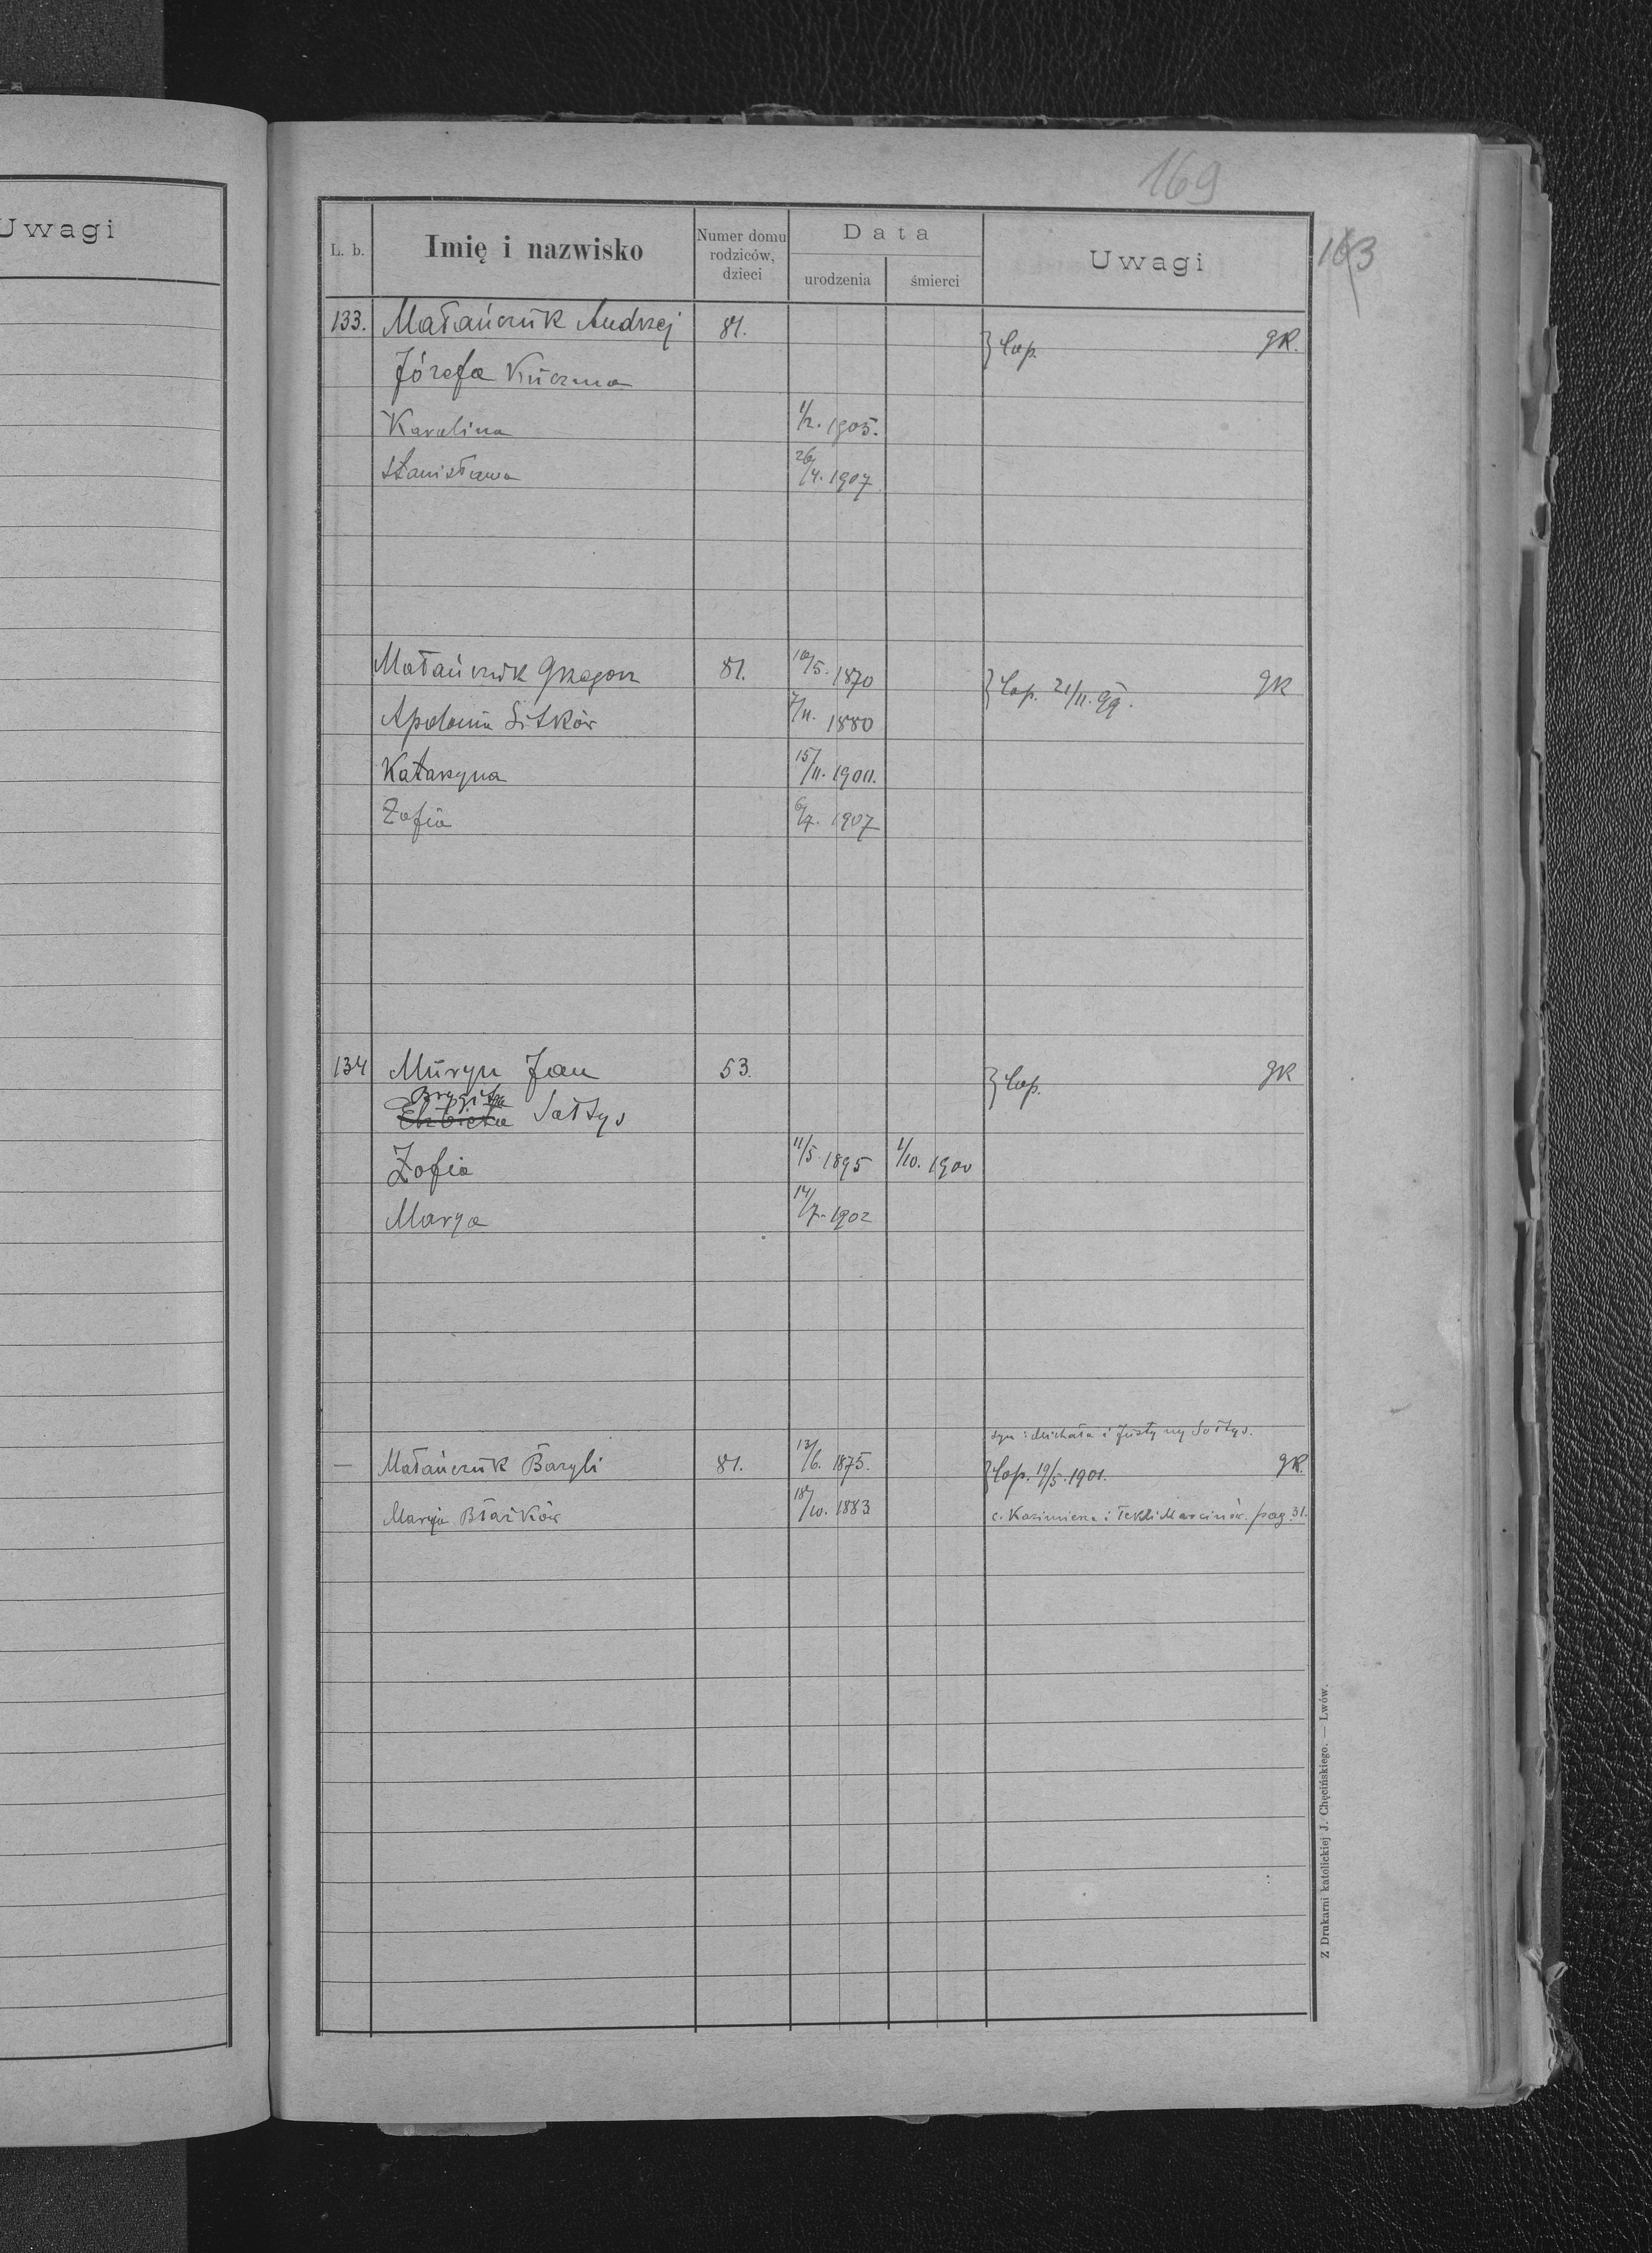 Uwagi
169
163
L. b. Imię i nazwisko Numer domu rodziców, dzieci Data urodzenia śmierci Uwagi
133. Małańczuk Andrzej 81. } Cop. gk.
Józefa Kuczma
Karolina 1/2. 1905.
Stanisława 26/4. 1907
Małańczuk Grzegorz 81. 10/5. 1870 } Cop. 21/11. 99. gk
Apolonia Sitków 7/11. 1880
Katarzyna 15/11. 1900.
Zofia 6/7. 1907
134 Muryn Jan 53. } Cop. gk
Brygitta
Elżbieta Sołtys
Zofia 11/5 1895 1/10. 1900
Marya 14/7. 1902
syn: Michała i Justyny Sołtys.
— Małańczuk Bazyli 81. 13/6. 1875. } Cop. 19/5. 1901. gk.
Maryja Błażków 18/10. 1883 c. Kazimierza i Tekli Marcinów. pag. 31.
Z Drukarni katolickiej J. Chęcińskiego. — Lwów.